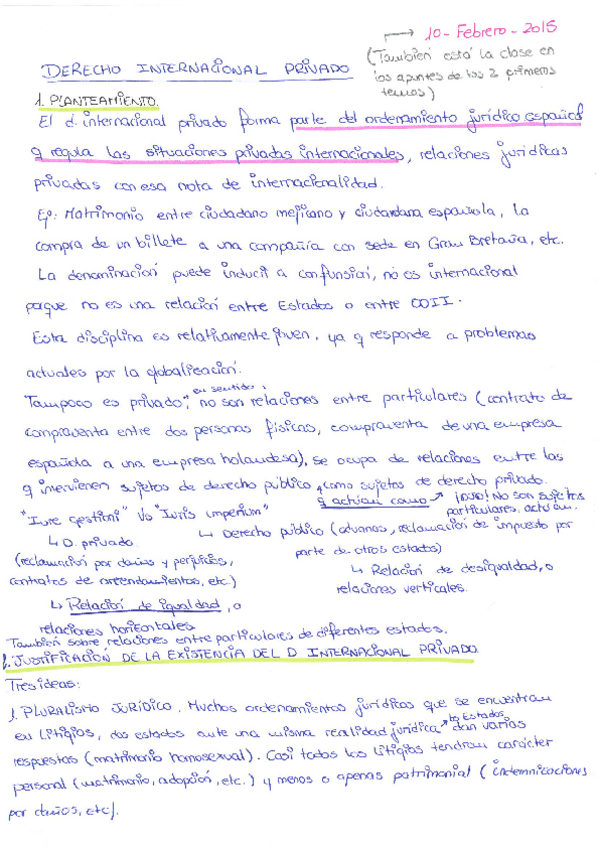 10-Febrero-2015
(También está la clase en
los apuntes de los 2 primeros
temas)
DERECHO INTERNACIONAL PRIVADO
1. PLANTEAMIENTO.
El d. internacional privado forma parte del ordenamiento jurídico español
q regula las situaciones privadas internacionales, relaciones jurídicas
privadas con esa nota de internacionalidad.
Ep: Matrimonio entre ciudadano mejicano y ciudadana española, la
compra de un billete a una compañía con sede en Gran Bretaña, etc.
La denominación puede inducir a confusión, no es internacional
porque no es una relación entre Estados o entre OOII.
Esta disciplina es relativamente joven, ya q responde a problemas
actuales por la globalización.
en sentido
"Tampoco es privado", no son relaciones entre particulares (contrato de
compraventa entre dos personas físicas, compraventa de una empresa
española a una empresa holandesa), se ocupa de relaciones entre las
q intervienen sujetos de derecho público, como sujetos de derecho privado.
q actúan como → ¡OJO! No son sujetos
particulares, actúan.
"Iure gestioni" Vs "Iuris imperium"
↳ D. privado
(reclamación por daños y perjuicios,
contratos de arrendamientos, etc.)
↳ Relación de igualdad, o
relaciones horizontales
↳ Derecho público (aduanas, reclamación de impuesto por
parte de otros estados)
↳ Relación de desigualdad, o
relaciones verticales.
También sobre relaciones entre particulares de diferentes estados.
2. JUSTIFICACIÓN DE LA EXISTENCIA DEL D INTERNACIONAL PRIVADO.
Tres ideas:
1. PLURALISMO JURÍDICO. Muchos ordenamientos jurídicos que se encuentran
en litigios, dos estados ante una misma realidad jurídica dan varias
Estados
respuestas (matrimonio homosexual). Casi todos los litigios tendrán carácter
personal (matrimonio, adopción, etc.) y menos o apenas patrimonial (indemnizaciones
por daños, etc).